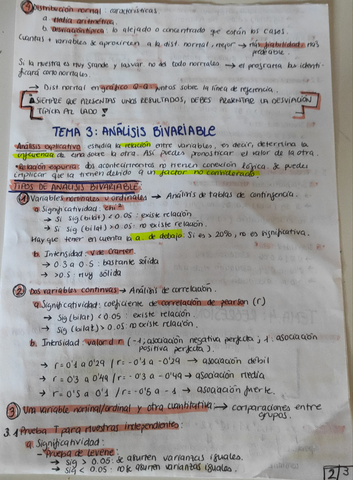 ④ Distribución normal: características
a. media aritmética
b. : lo alejado o concentrado que están los casos.
Cuantas + variables se aproximen a la dist. normal, mejor → más probable.
Si la muestra es muy grande y las var no del todo normales → el programa las identi-
ficará como normales
→ Dist normal en gráfico Q-Q: puntos sobre la línea de referencia.
SIEMPRE QUE PRESENTAS UNOS RESULTADOS, DEBES PRESENTAR LA DESVIACIÓN
TÍPICA AL LADO
TEMA 3: ANÁLISIS BIVARIABLE
Análisis explicativo: estudia la relación entre variables, es decir, determina la
influencia de una sobre la otra. Así puedes pronosticar el valor de la otra.
Relación espuria: dos acontecimientos no tienen conexión lógica. Se puede
implicar que la tienen debido a un factor no considerado
TIPOS DE ANÁLISIS BIVARIABLE
① Variables nominales u ordinales → Análisis de tablas de contingencia.
a. Significatividad: chi²
→ Si sig (bilat) < 0.05: existe relación.
→ Si sig (bilat) > 0.05: no existe relación.
Hay que tener en cuenta la a. de debajo. Si es > 20%, no es significativa.
b. Intensidad: V de Cramer
→ 0.3 a 0.5: bastante sólida
→ > 0.5: muy sólida
② Dos variables continuas → Análisis de correlación.
a. Significatividad: coeficiente de correlación de pearson (r)
→ Sig (bilat) < 0.05: existe relación.
→ Sig (bilat) > 0.05: no existe relación.
b. Intensidad: valor de r (-1, asociación negativa perfecta; 1: asociación
positiva perfecta).
→ r = 0'1 a 0'29 / r = -0'1 a -0'29 → asociación débil
→ r = 0'3 a 0'49 / r = -0'3 a -0'49 → asociación media
→ r = 0'5 a 0'1 / r = -0'5 a -1 → asociación fuerte.
③ Una variable nominal/ordinal y otra cuantitativa → comparaciones entre
grupos.
3.1 Prueba T para muestras independientes:
a. Significatividad:
- Prueba de Levene:
→ sig > 0.05: se asumen varianzas iguales.
→ sig < 0.05: no se asumen varianzas iguales.
2 3